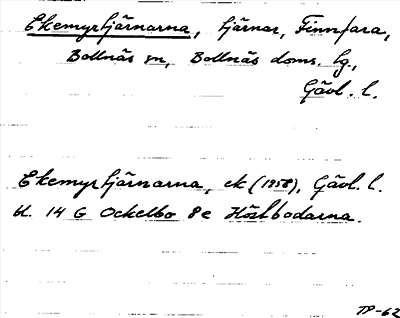 Ekemyrtjärnarna, tjärnar, Finnfara,
Bollnäs sn, Bollnäs doms. lg.,
Gävl. l.
Ekemyrtjärnarna, ek (1958), Gävl. l.
bl. 14 G Ockelbo 8e Höstbodarna.
TP-62